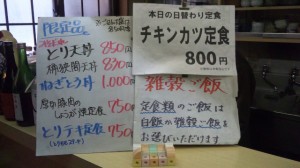 とり天丼 850円
830円
ねぎとろ丼 1,000円
しょうが焼定食 750円
とりテキ定食 750円
本日の日替わり定食
チキンカツ定食
800円
雑穀ご飯
定食類のご飯は
白飯か雑穀ご飯を
お選びいただけます